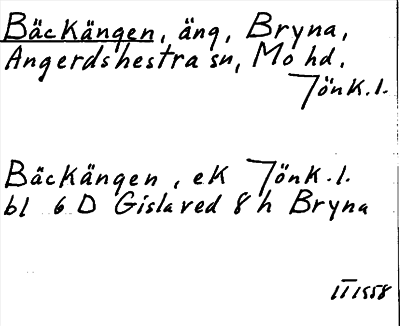 Bäckängen, äng, Bryna,
Angerdshestra sn, Mo hd.
Jönk. l.
Bäckängen, ek Jönk. l.
bl 6 D Gislaved 8 h Bryna
1958